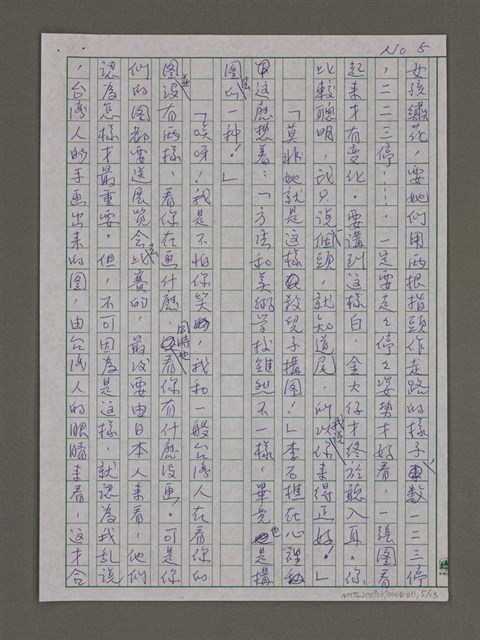 No 5
女孩繡花，要她們用兩根指頭作走路的樣子，數一二三停
，二二三停……一定要走走停停姿勢才好看，一張圖看
起來才有變化。要講到這樣白，金大仔才終於聽入耳。你
比較聰明，我只說個頭，就知道尾，所以我說你來得正好！」
「莫非她就是這樣教兒子構圖！」李石樵在心裡
這麼想着：「方法和美術學校雖然不一樣，畢竟也是構
圖的一種！」
「唉呀！我是不怕你笑，我和一般台灣人在看你的
圖並沒有兩樣，看你在畫什麼，同時也看你有什麼沒畫。可是你
們的圖都要送展覽會去比賽的，最後要由日本人來看，他們
認為怎樣才最重要。但，不可因為是這樣，就認為我亂說
，台灣人的手畫出來的圖，由台灣人的眼睛來看，這才合
NMTL20090070008-011, 5/13